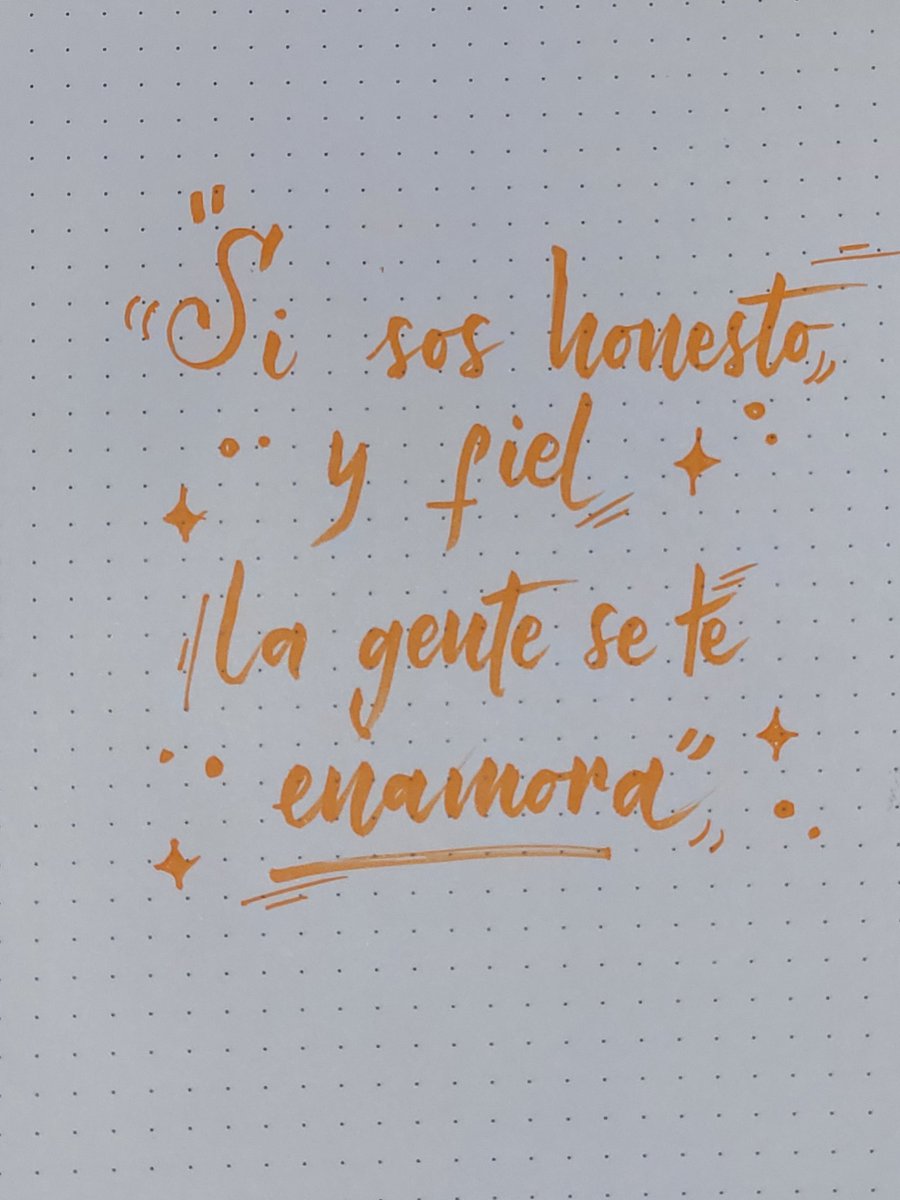 "Si sos honesto
y fiel
la gente se te
enamora"